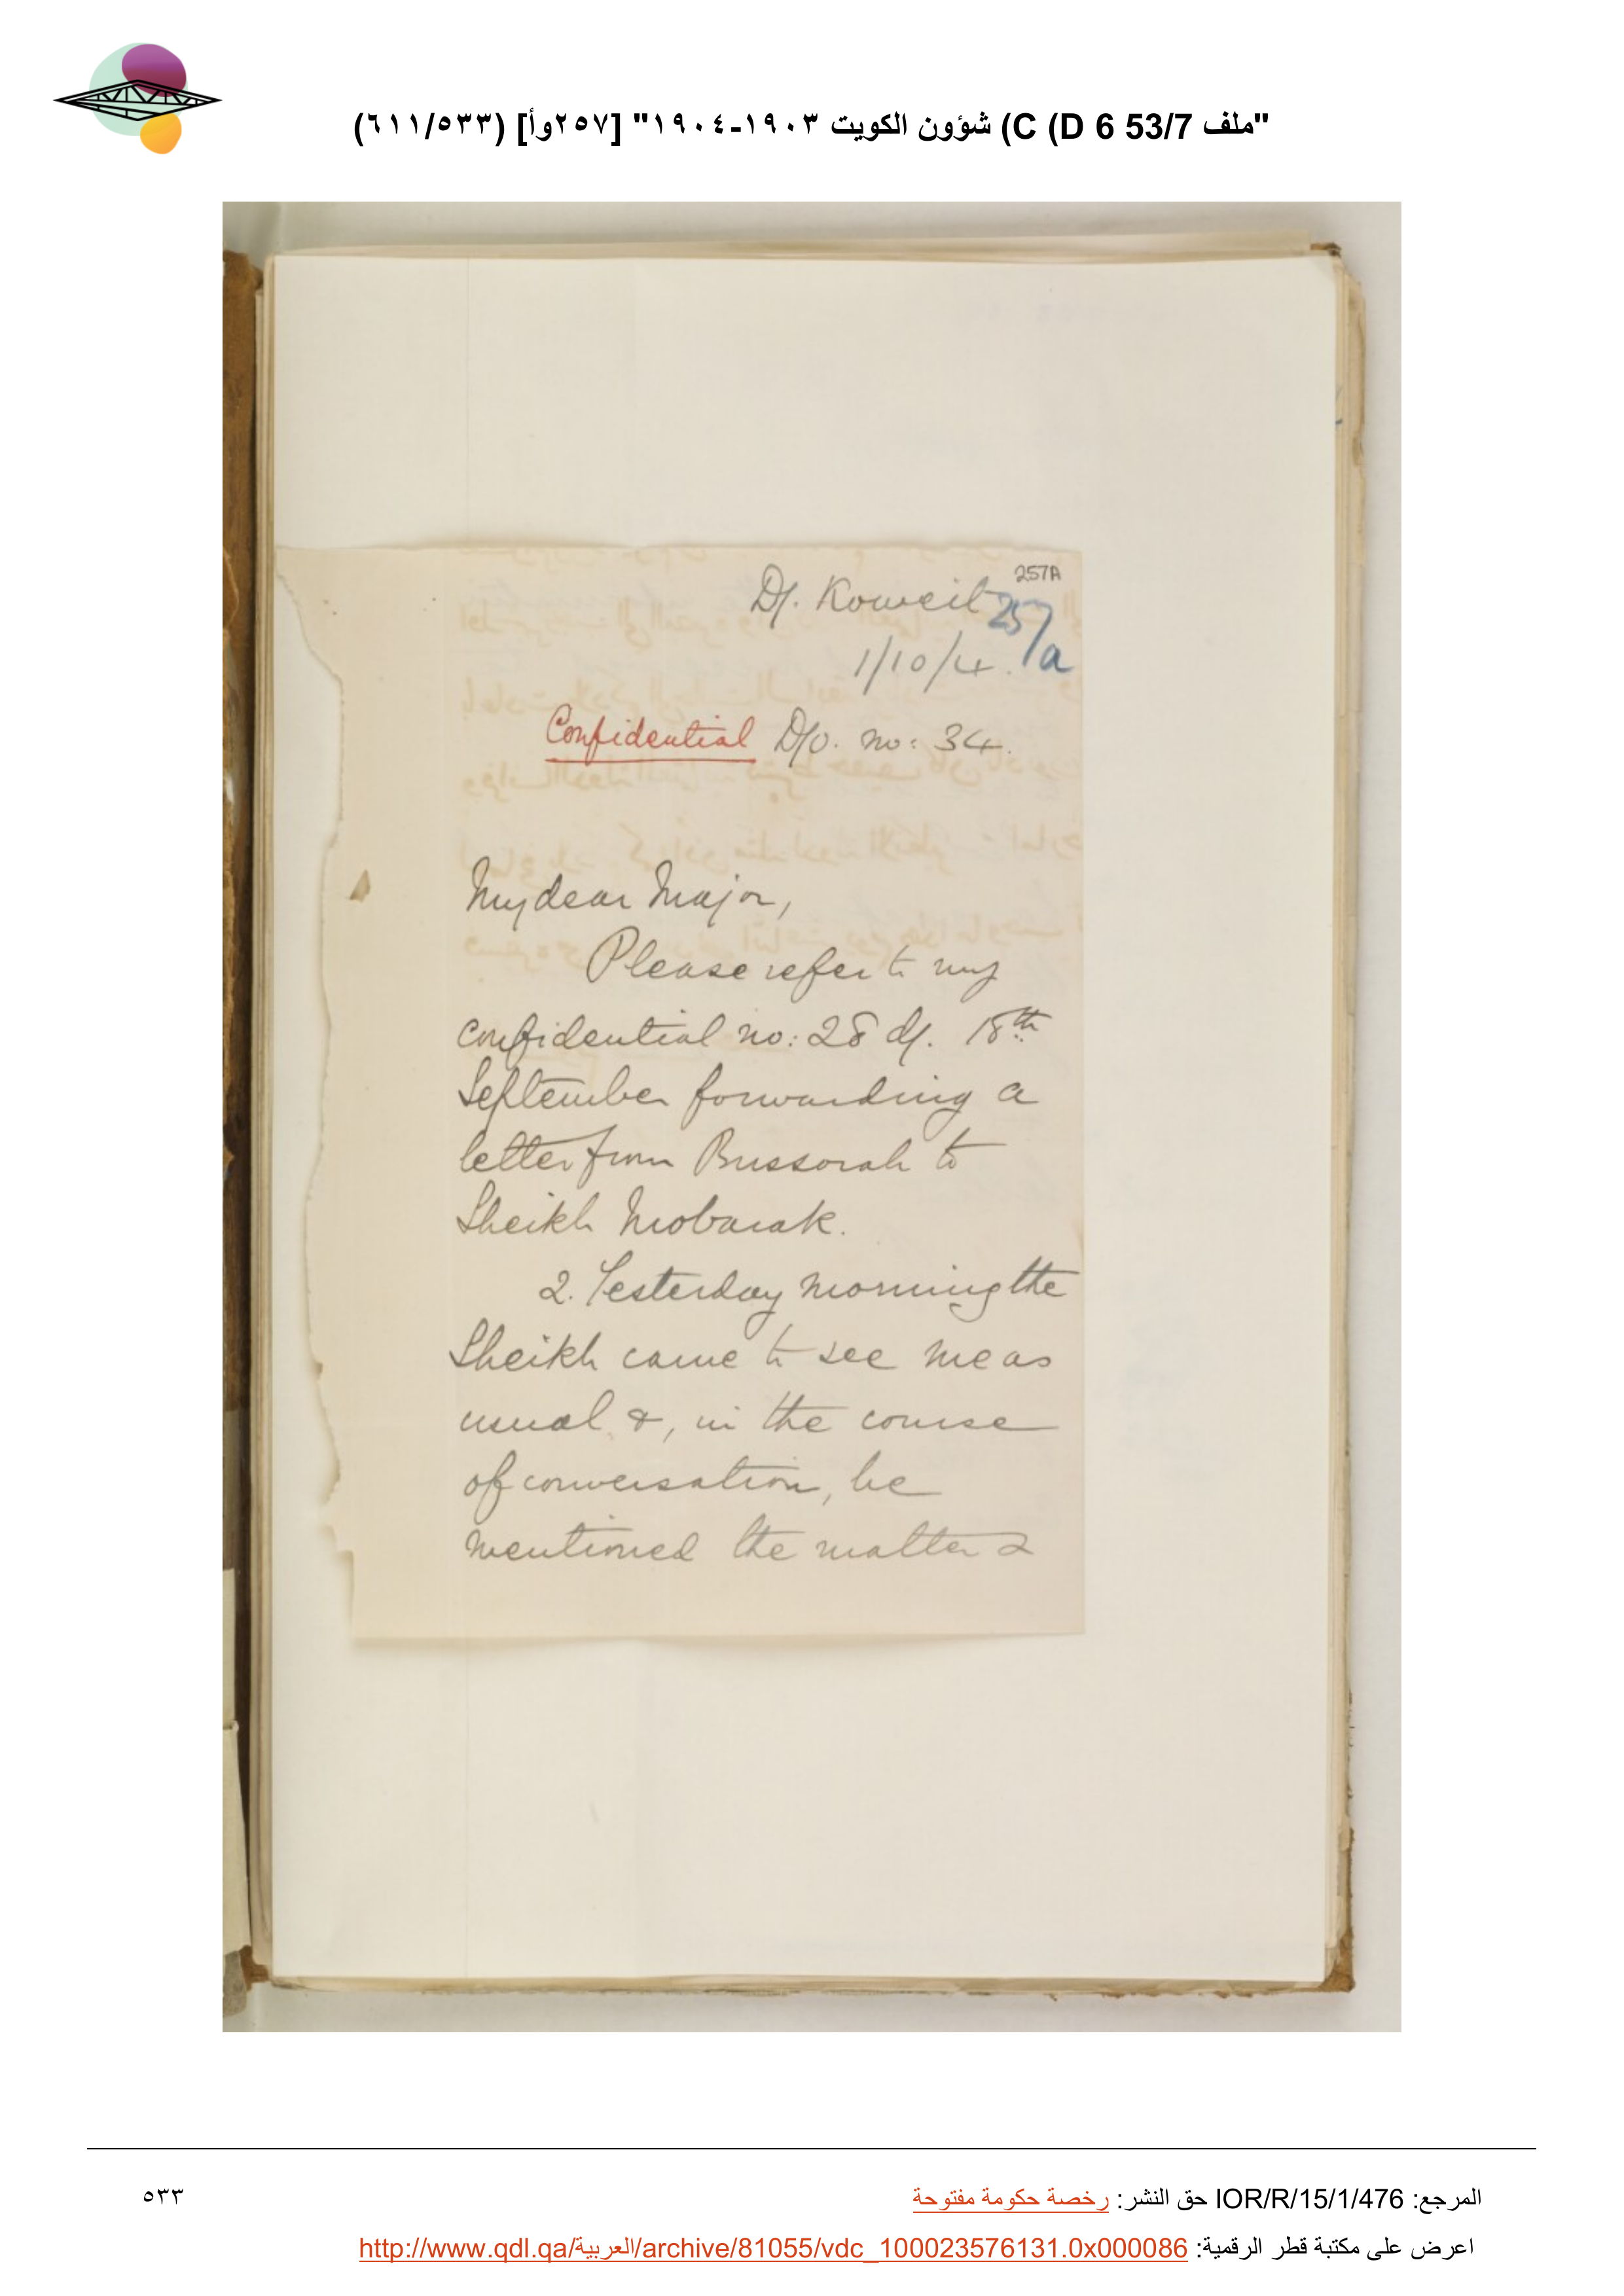 "ملف 53/7 C (D 6) شؤون الكويت ١٩٠٣-١٩٠٤" [٢٥٧وأ] (٥٣٣/٦١١)
257A
Dd. Koweit
257a
1/10/4.
Confidential D/O. no: 34.
My dear Major,
Please refer to my
confidential no: 28 dd. 18th
September forwarding a
letter from Bussorah to
Sheikh Mobarak.
2. Yesterday morning the
Sheikh came to see me as
usual &, in the course
of conversation, he
mentioned the matter &
المرجع: IOR/R/15/1/476 حق النشر: رخصة حكومة مفتوحة
٥٣٣
اعرض على مكتبة قطر الرقمية: http://www.qdl.qa/العربية/archive/81055/vdc_100023576131.0x000086